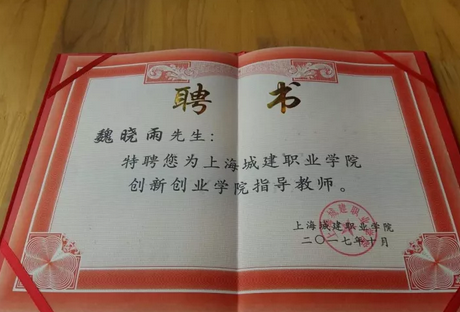 聘 书
魏晓雨先生：
特聘您为上海城建职业学院
创新创业学院指导教师。
上海城建职业学院
二〇一七年十月